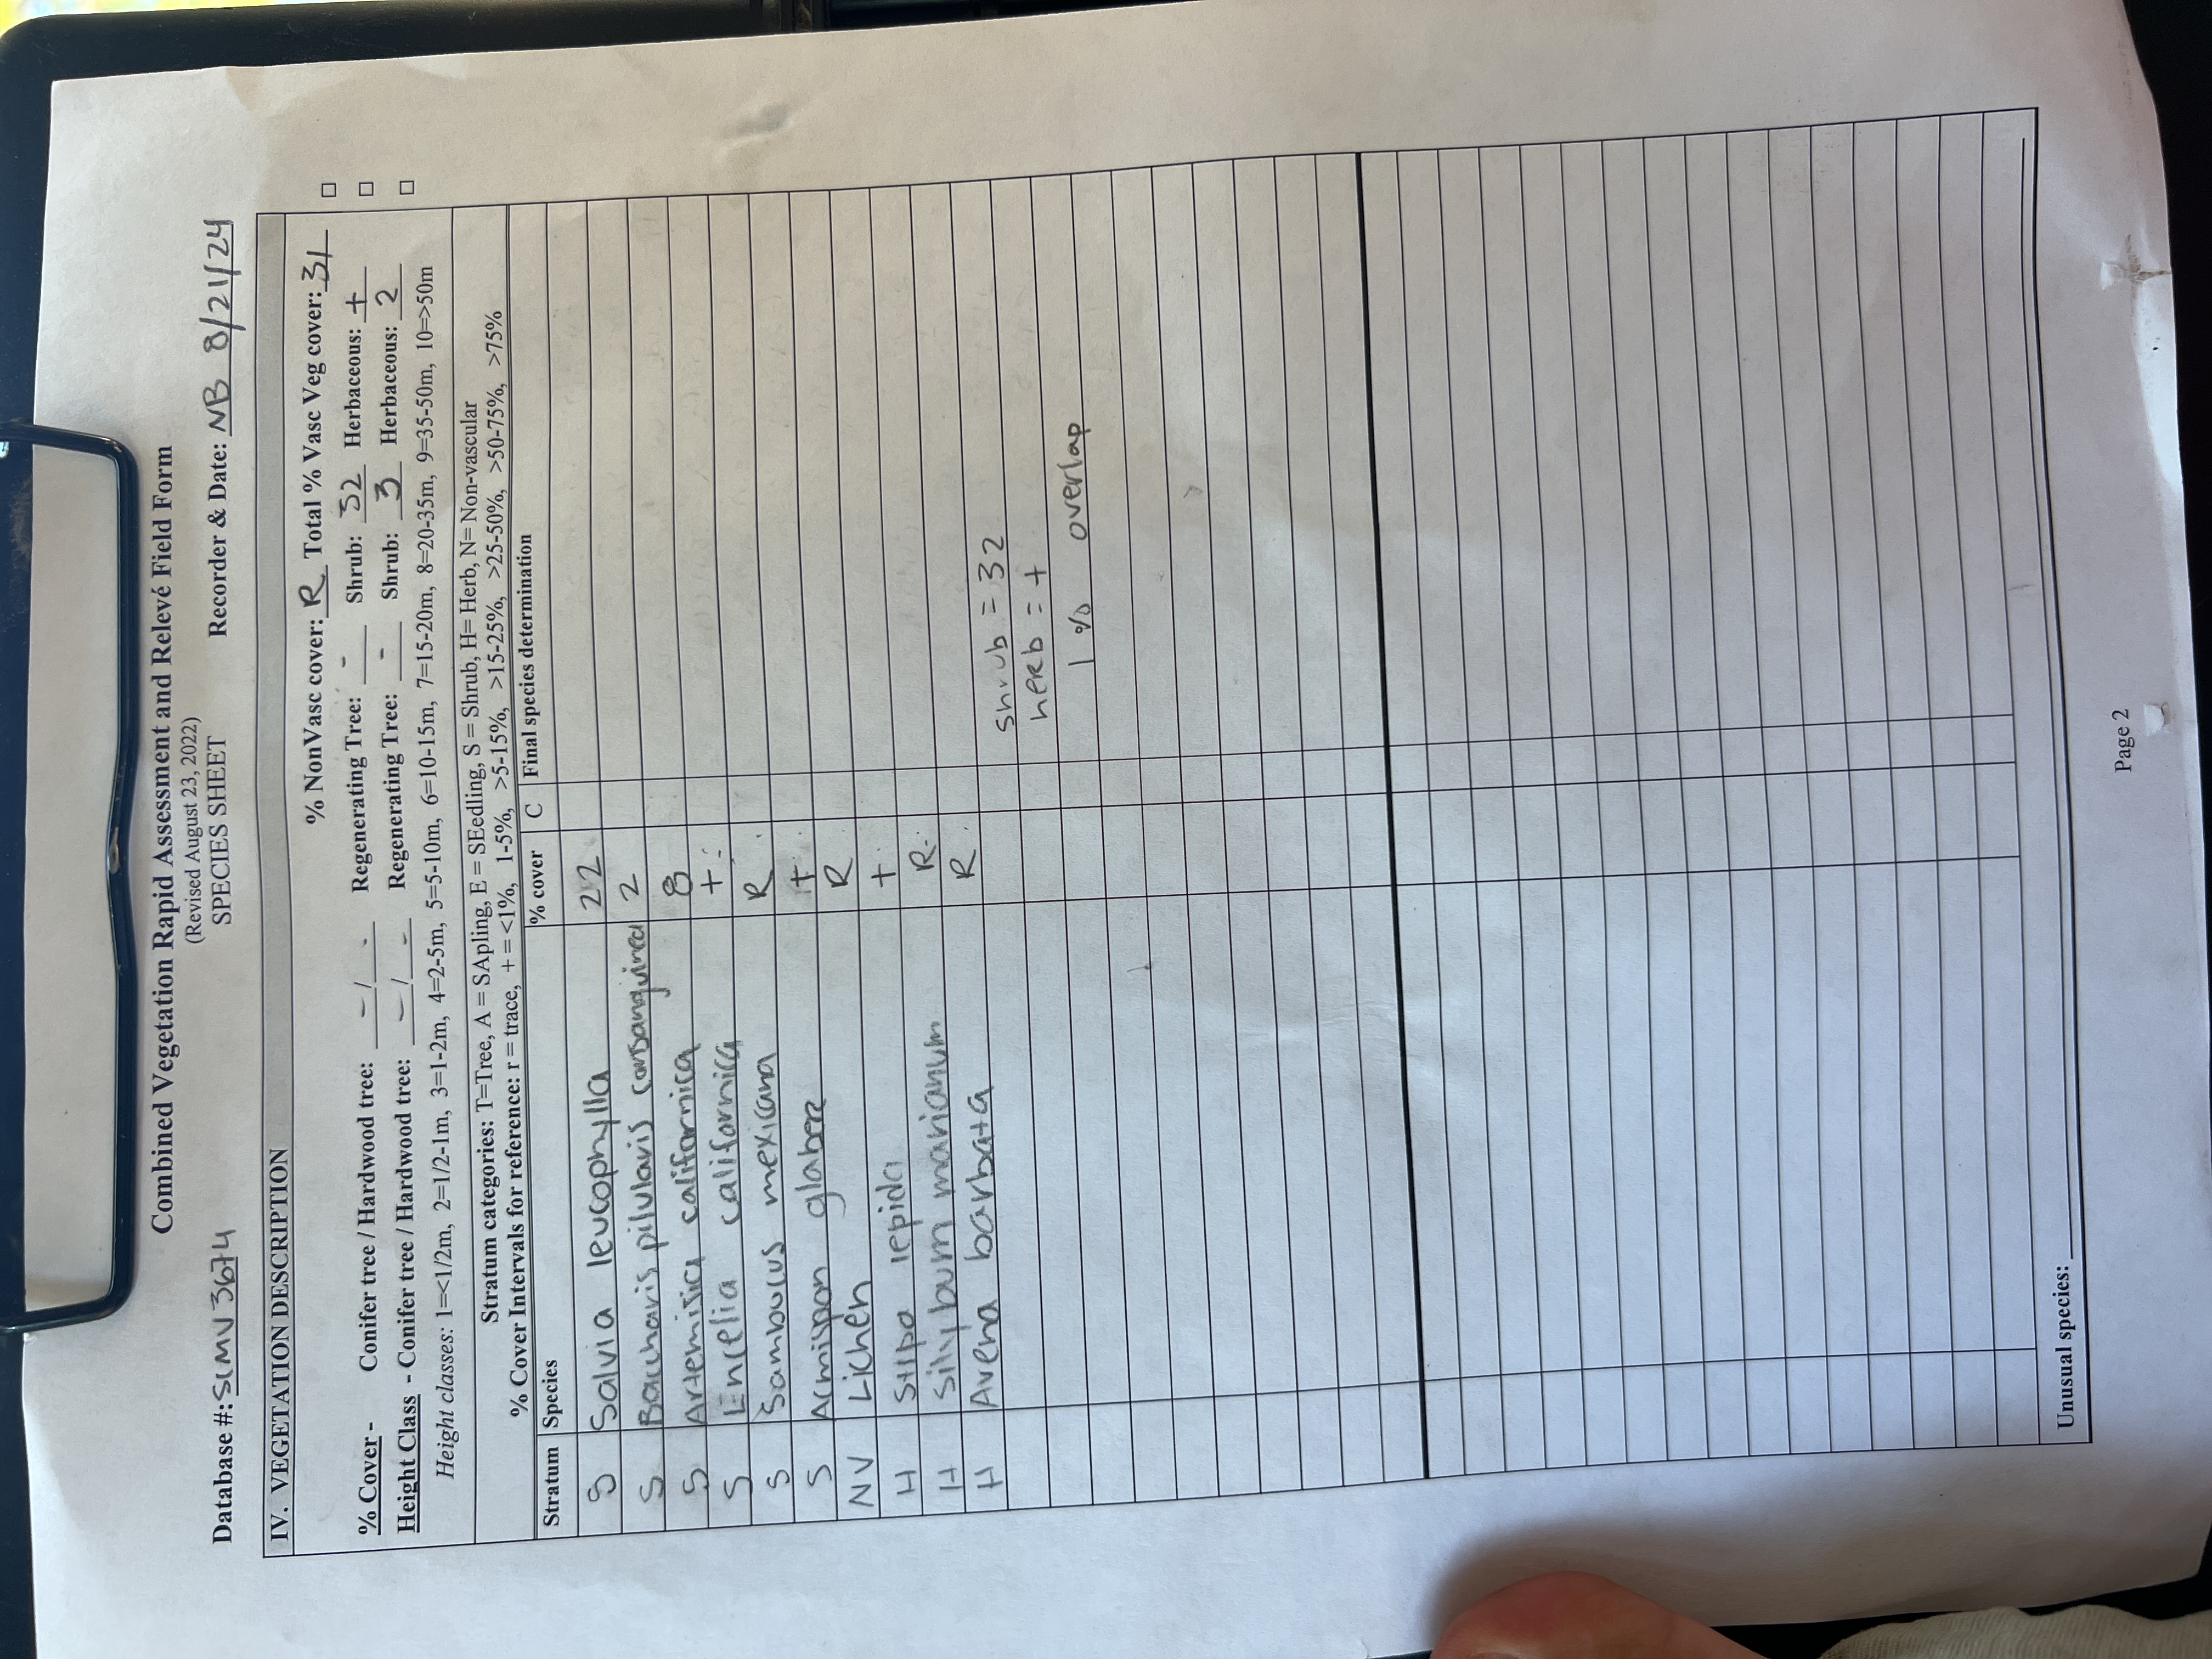 Combined Vegetation Rapid Assessment and Relevé Field Form
(Revised August 23, 2022)
SPECIES SHEET
Database #: SIMV 3674 Recorder & Date: NB 8/21/24
IV. VEGETATION DESCRIPTION
% NonVasc cover: R Total % Vasc Veg cover: 31
% Cover - Conifer tree / Hardwood tree: - / - Regenerating Tree: - Shrub: 32 Herbaceous: +
Height Class - Conifer tree / Hardwood tree: - / - Regenerating Tree: - Shrub: 3 Herbaceous: 2
Height classes: 1=<1/2m, 2=1/2-1m, 3=1-2m, 4=2-5m, 5=5-10m, 6=10-15m, 7=15-20m, 8=20-35m, 9=35-50m, 10=>50m
Stratum categories: T=Tree, A = SApling, E = SEedling, S = Shrub, H= Herb, N= Non-vascular
% Cover Intervals for reference: r = trace, + = <1%, 1-5%, >5-15%, >15-25%, >25-50%, >50-75%, >75%
Stratum Species % cover C Final species determination
S Salvia leucophylla 22
S Baccharis pilularis consanguinea 2
S Artemisia californica 8
S Encelia californica +
S Sambucus mexicana R
S Acmispon glaber +
NV Lichen R
H Stipa lepida +
H Silybum marianum R
H Avena barbata R
shrub = 32
herb = +
1 % overlap
Unusual species:
Page 2